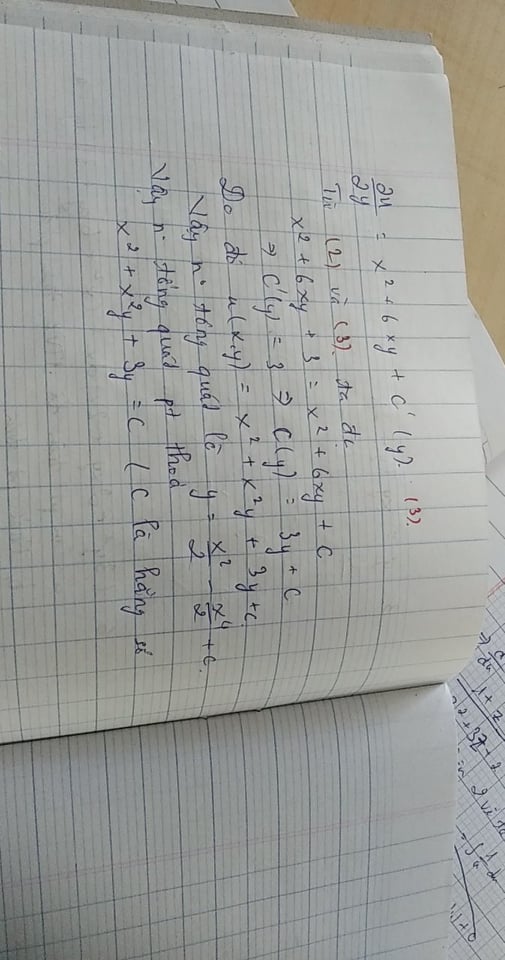 ∂u/∂y = x² + 6xy + C'(y). (3).
Từ (2) và (3). ta đc
x² + 6xy + 3 = x² + 6xy + C
⇒ C'(y) = 3 ⇒ C(y) = 3y + C
Do đó u(x,y) = x² + x²y + 3y + c.
Vậy n⁰ tổng quát là y = x²/2 - x⁴/2 + c.
Vậy n⁰ tổng quát pt thoả
x² + x²y + 3y = C ( C là hằng số